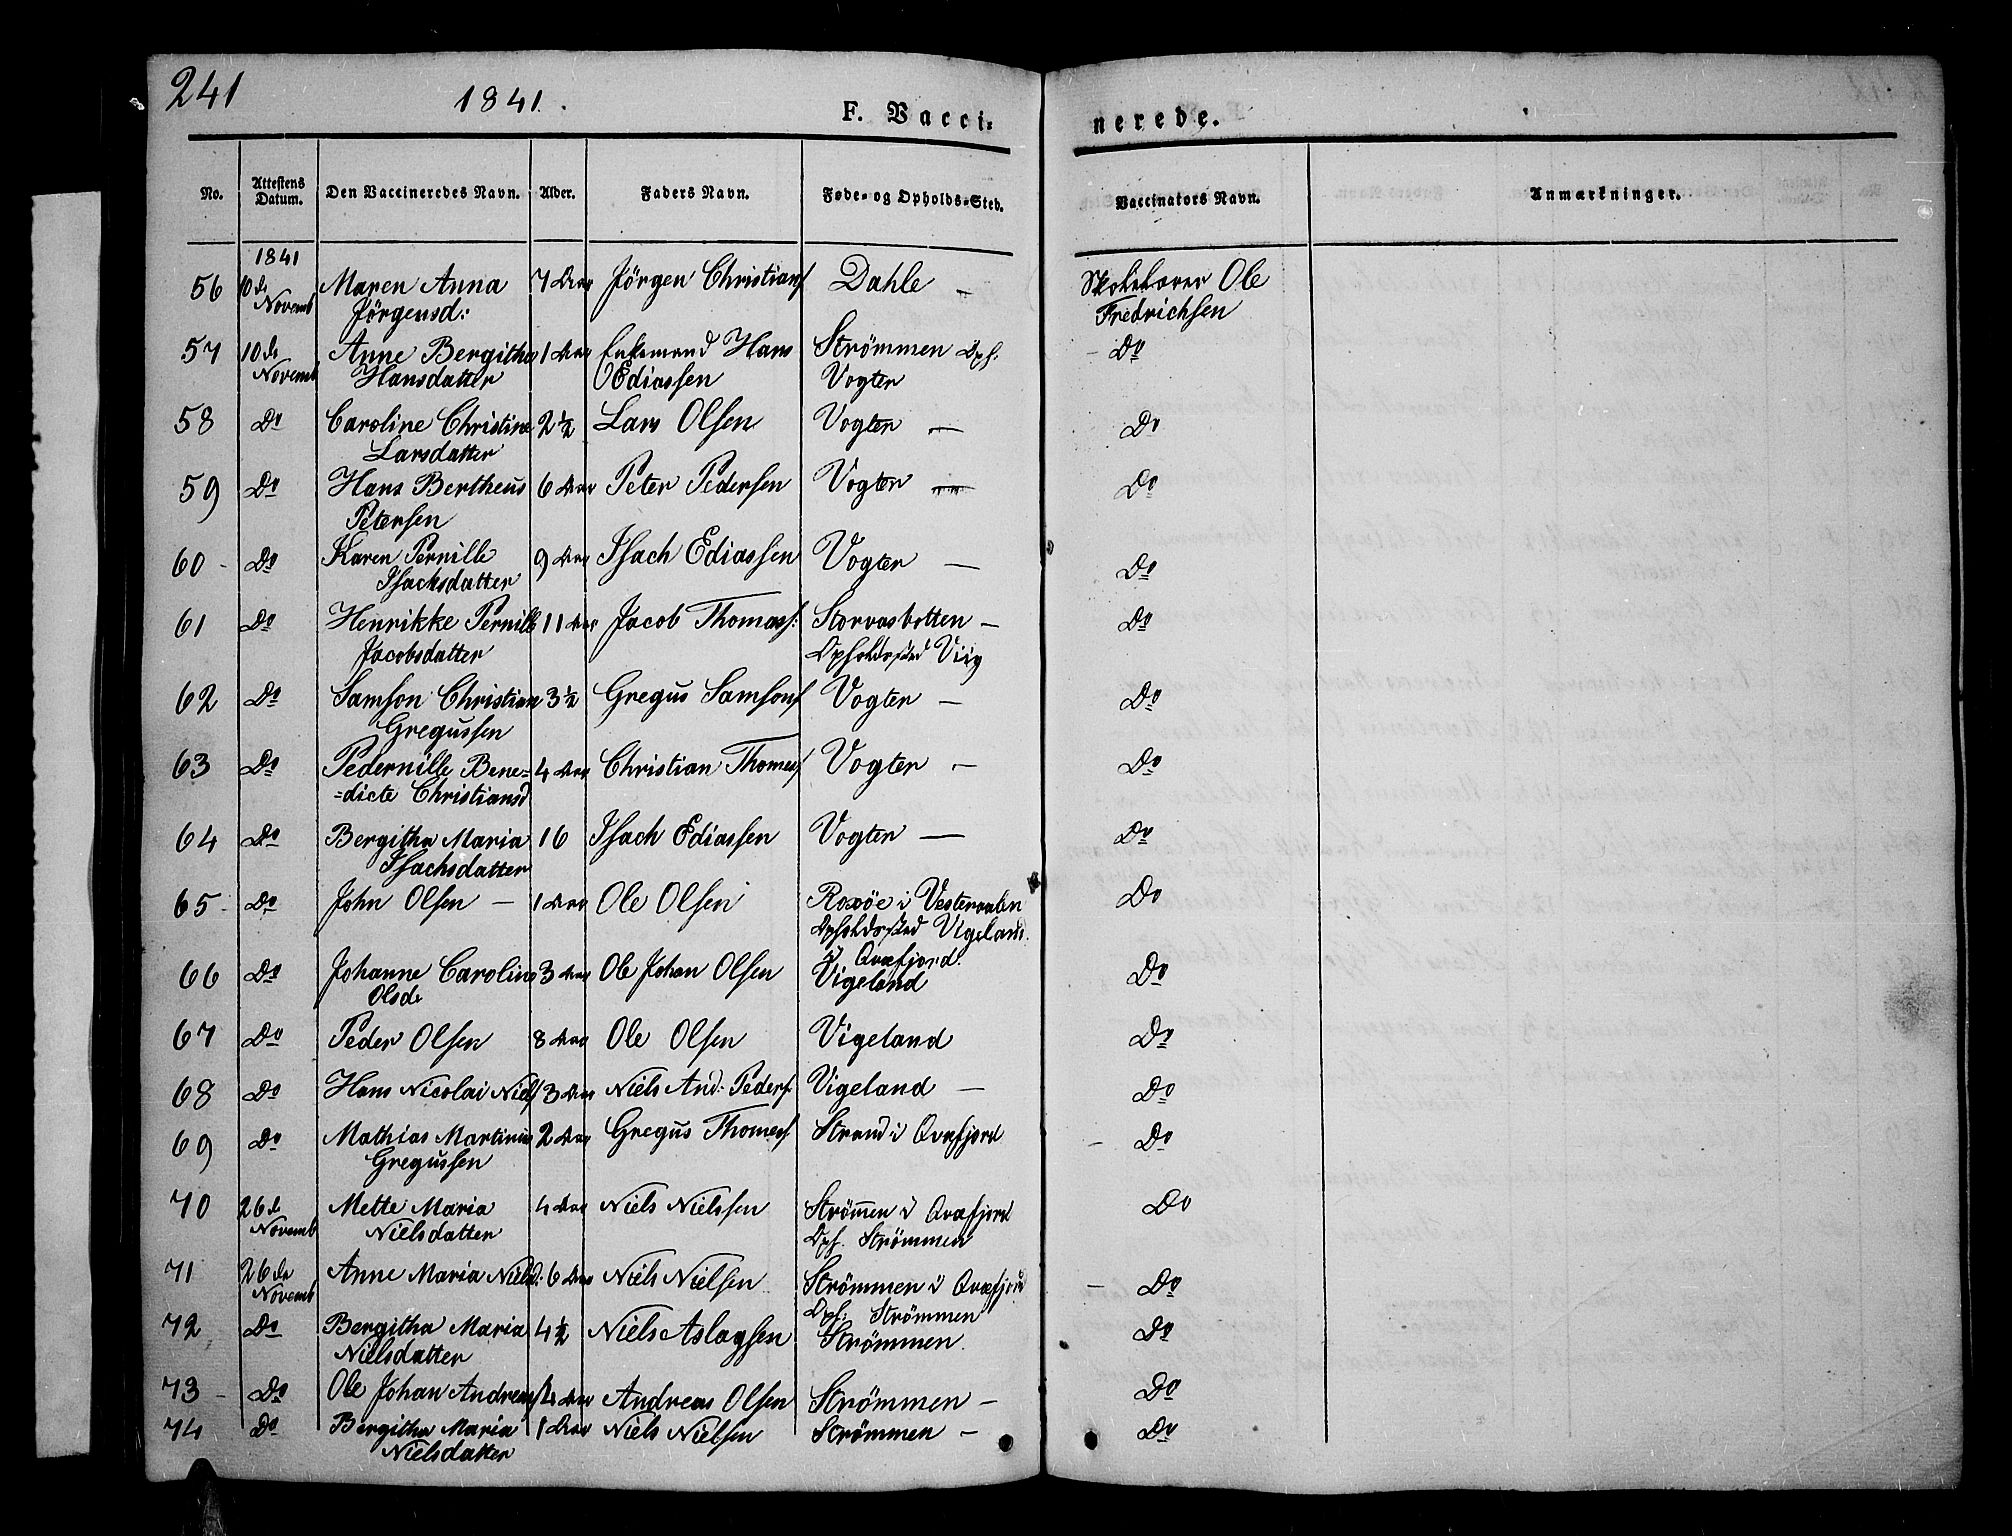 241
1841.
F. Vacci=
nerede.
No. Attestens Datum. Den Vaccineredes Navn. Alder. Faders Navn. Føde- og Opholds-Sted. Vaccinators Navn. Anmærkninger.
1841
56 10de Novemb Maren Anna 7 Aar Jörgen Christians Dahle – Skolelærer Ole
Jörgensd: Fredrichsen
57 10de Anne Bergitha 1 Aar Enkemand Hans Strömmen Oph: Do
Novemb Hansdatter Ediassen Vogter
58 Do Caroline Christine 2½ Lars Olsen Vogter – Do
Larsdatter
59 Do Hans Bertheus 6 Aar Peter Pedersen Vogter – Do
Petersen
60 Do Karen Pernille 9 Aar Isach Ediassen Vogter – Do
Isacksdatter
61 Do Henrikke Pernille 11 Aar Jacob Thomass: Storvasbotten – Do
Jacobsdatter Opholdssted Viig
62 Do Samson Christian 3½ Gregus Samsons Vogter – Do
Gregussen
63 Do Pedernille Bene= 4 Aar Christian Thomes Vogter – Do
=dicte Christiansd
64 Do Bergitha Maria 16 Isach Ediassen Vogter – Do
Isachsdatter
65 Do John Olsen – 1 Aar Ole Olsen Roxöe i Vesteraalen Do
Opholdssted Vigeland
i Qvæfjord.
66 Do Johanne Caroline 3 Aar Ole Johan Olsen Vigeland Do
Olsdr
67 Do Peder Olsen 8 Aar Ole Olsen Vigeland Do
68 Do Hans Nicolai Niels 3 Aar Niels And: Peders. Vigeland – Do
69 Do Mathias Martinus 2 Aar Gregus Thomes Strand i Qvæfjord – Do
Gregussen
70 26de Mette Maria 4 Aar Niels Nielsen Strömen i Qvæfjord Do
Novemb Nielsdatter Oph. Strömmen
71 26de Anne Maria Nielsd: 6 Aar Niels Nielsen Strömmen i Qvæfjord – Do
Novemb Oph: Strömmen
72 Do Bergitha Maria 4½ Niels Aslagsen Strömmen. Do
Nielsdatter
73 – Do Ole Johan Andreas Aar Andreas Olsen Strömmen – Do
74 Do Bergitha Maria 1 Aar Niels Nielsen Strömmen – Do
Nielsdatter